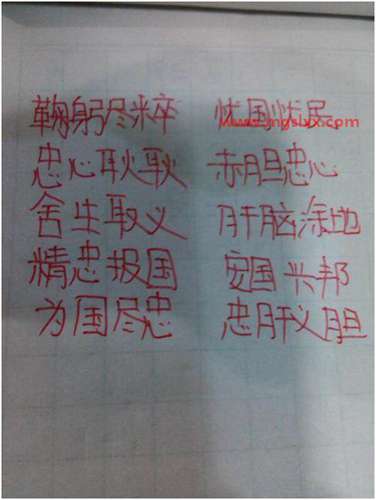 鞠躬尽粹 忧国忧民
www.mgsbx.com
忠心耿耿 赤胆忠心
舍生取义 肝脑涂地
精忠报国 安国兴邦
为国尽忠 忠肝义胆